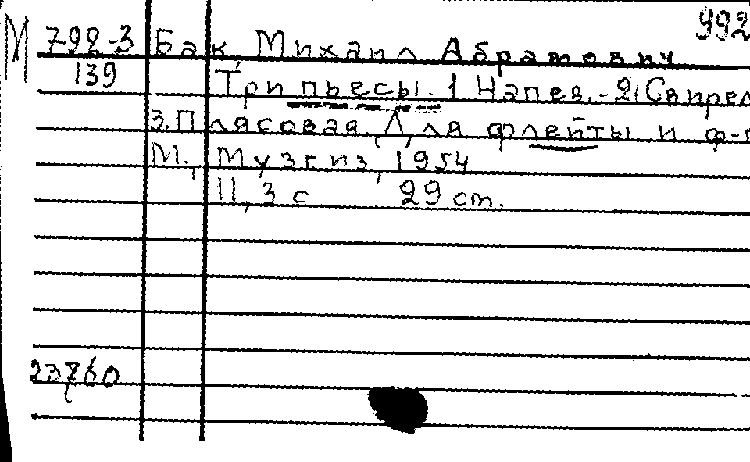 992
М 792-3 Бак, Михаил Абрамович
139 Три пьесы. 1 Напев. - 2. Свирел
3. Плясовая. Для флейты и ф-п
М., Музгиз, 1954
11, 3 с 29 cm.
23760